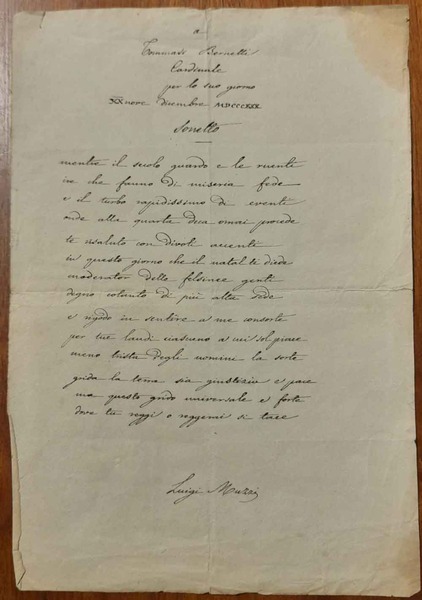 a
Tommaso Bernetti
Cardinale
per lo suo giorno
XXnove dicembre MDCCCXXX
Sonetto
mentre il secolo guardo e le ruenti
ire che fanno di miseria fede
e il turbo rapidissimo di eventi
onde alla quarta deca omai procede
te risaluto con divoti accenti
in questo giorno che il natal ti diede
moderator delle felsinee genti
degno cotanto di più alta sede
e n'godo in sentire a me consorte
per tue laudi ciascuno a cui sol piace
meno trista degli uomini la sorte
grida la terra sia giustizia e pace
ma questo grido universale e forte
dove tu reggi o reggerai si tace
Luigi Muzzi